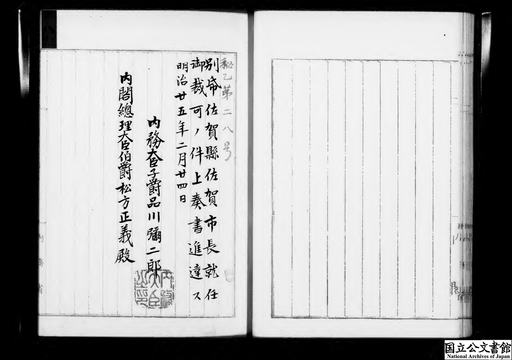 秘乙第二八号
別帋佐賀縣佐賀市長就任
御裁可ノ件上奏書進達ス
明治廿五年二月廿四日
内務大臣子爵品川彌二郎
内閣總理大臣伯爵松方正義殿
国立公文書館
National Archives of Japan